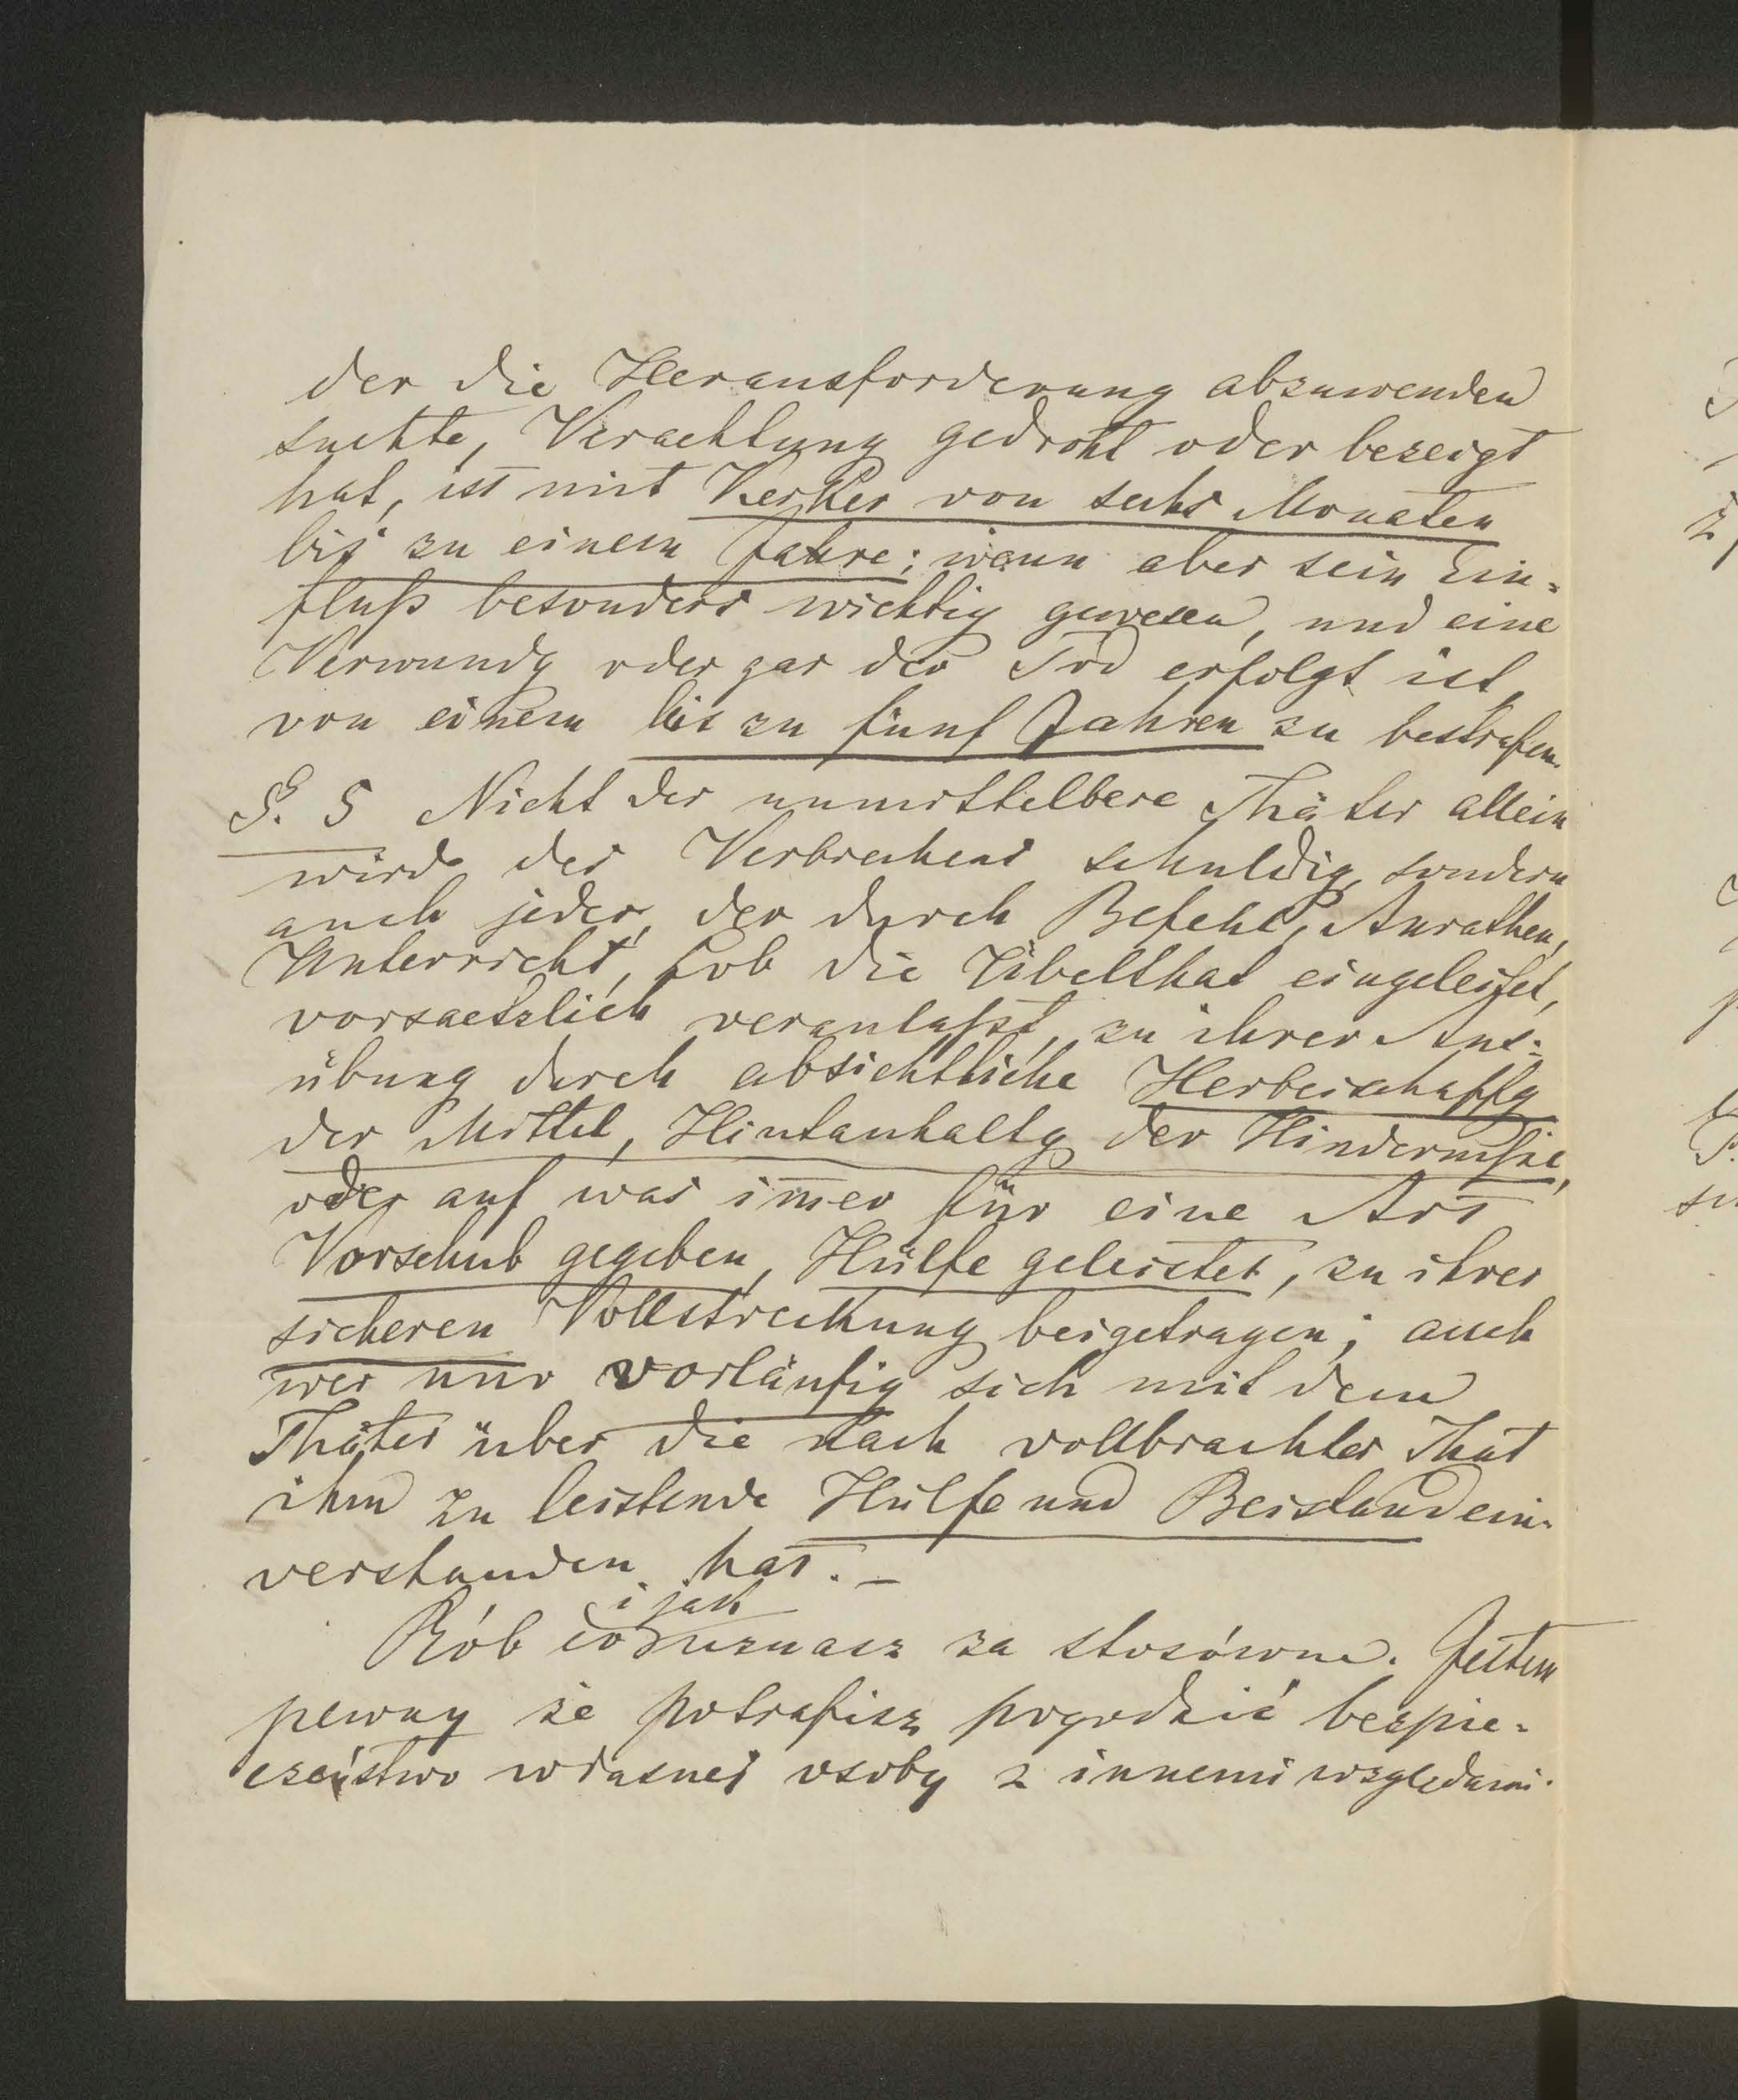 der die Herausforderung abzuwenden
suchte, Verachtung gedroht oder bezeigt
hat, ist mit Kerker von sechs Monaten
bis zu einem Jahre; wenn aber sein Ein-
fluß besonders wichtig gewesen, und eine
Verwundg oder gar der Tod erfolgt ist,
von einem bis zu fünf Jahren zu bestrafen.
§. 5 Nicht der unmittelbare Thäter allein
wird des Verbrechens schuldig, sondern
auch jeder, der durch Befehl, Anrathen,
Unterricht, Lob die Übelthat eingeleitet,
vorsaetzlich veranlaßt, zu ihrer Aus-
übung durch absichtliche Herbeischaffg
der Mittel, Hintanhaltg der Hindernisse,
oder auf was im̅er für eine Art
Vorschub gegeben, Hülfe geleistet, zu ihrer
sicheren Vollstreckung beigetragen; auch
wer nur vorläufig sich mit dem
Thäter über die nach vollbrachter That
ihm zu leistende Hülfe und Beistand ein-
verstanden hat. –
i jak
Rób co uznasz za stosówne. Jestem
pewny że potrafisz pogodzić bezpie-
czeństwo własnej osoby z innemi względami.